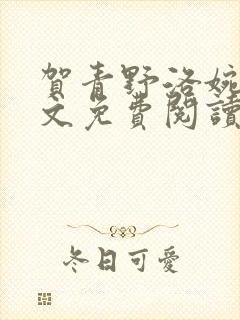 賀青野洛婉
文免費閱讀
冬日可愛